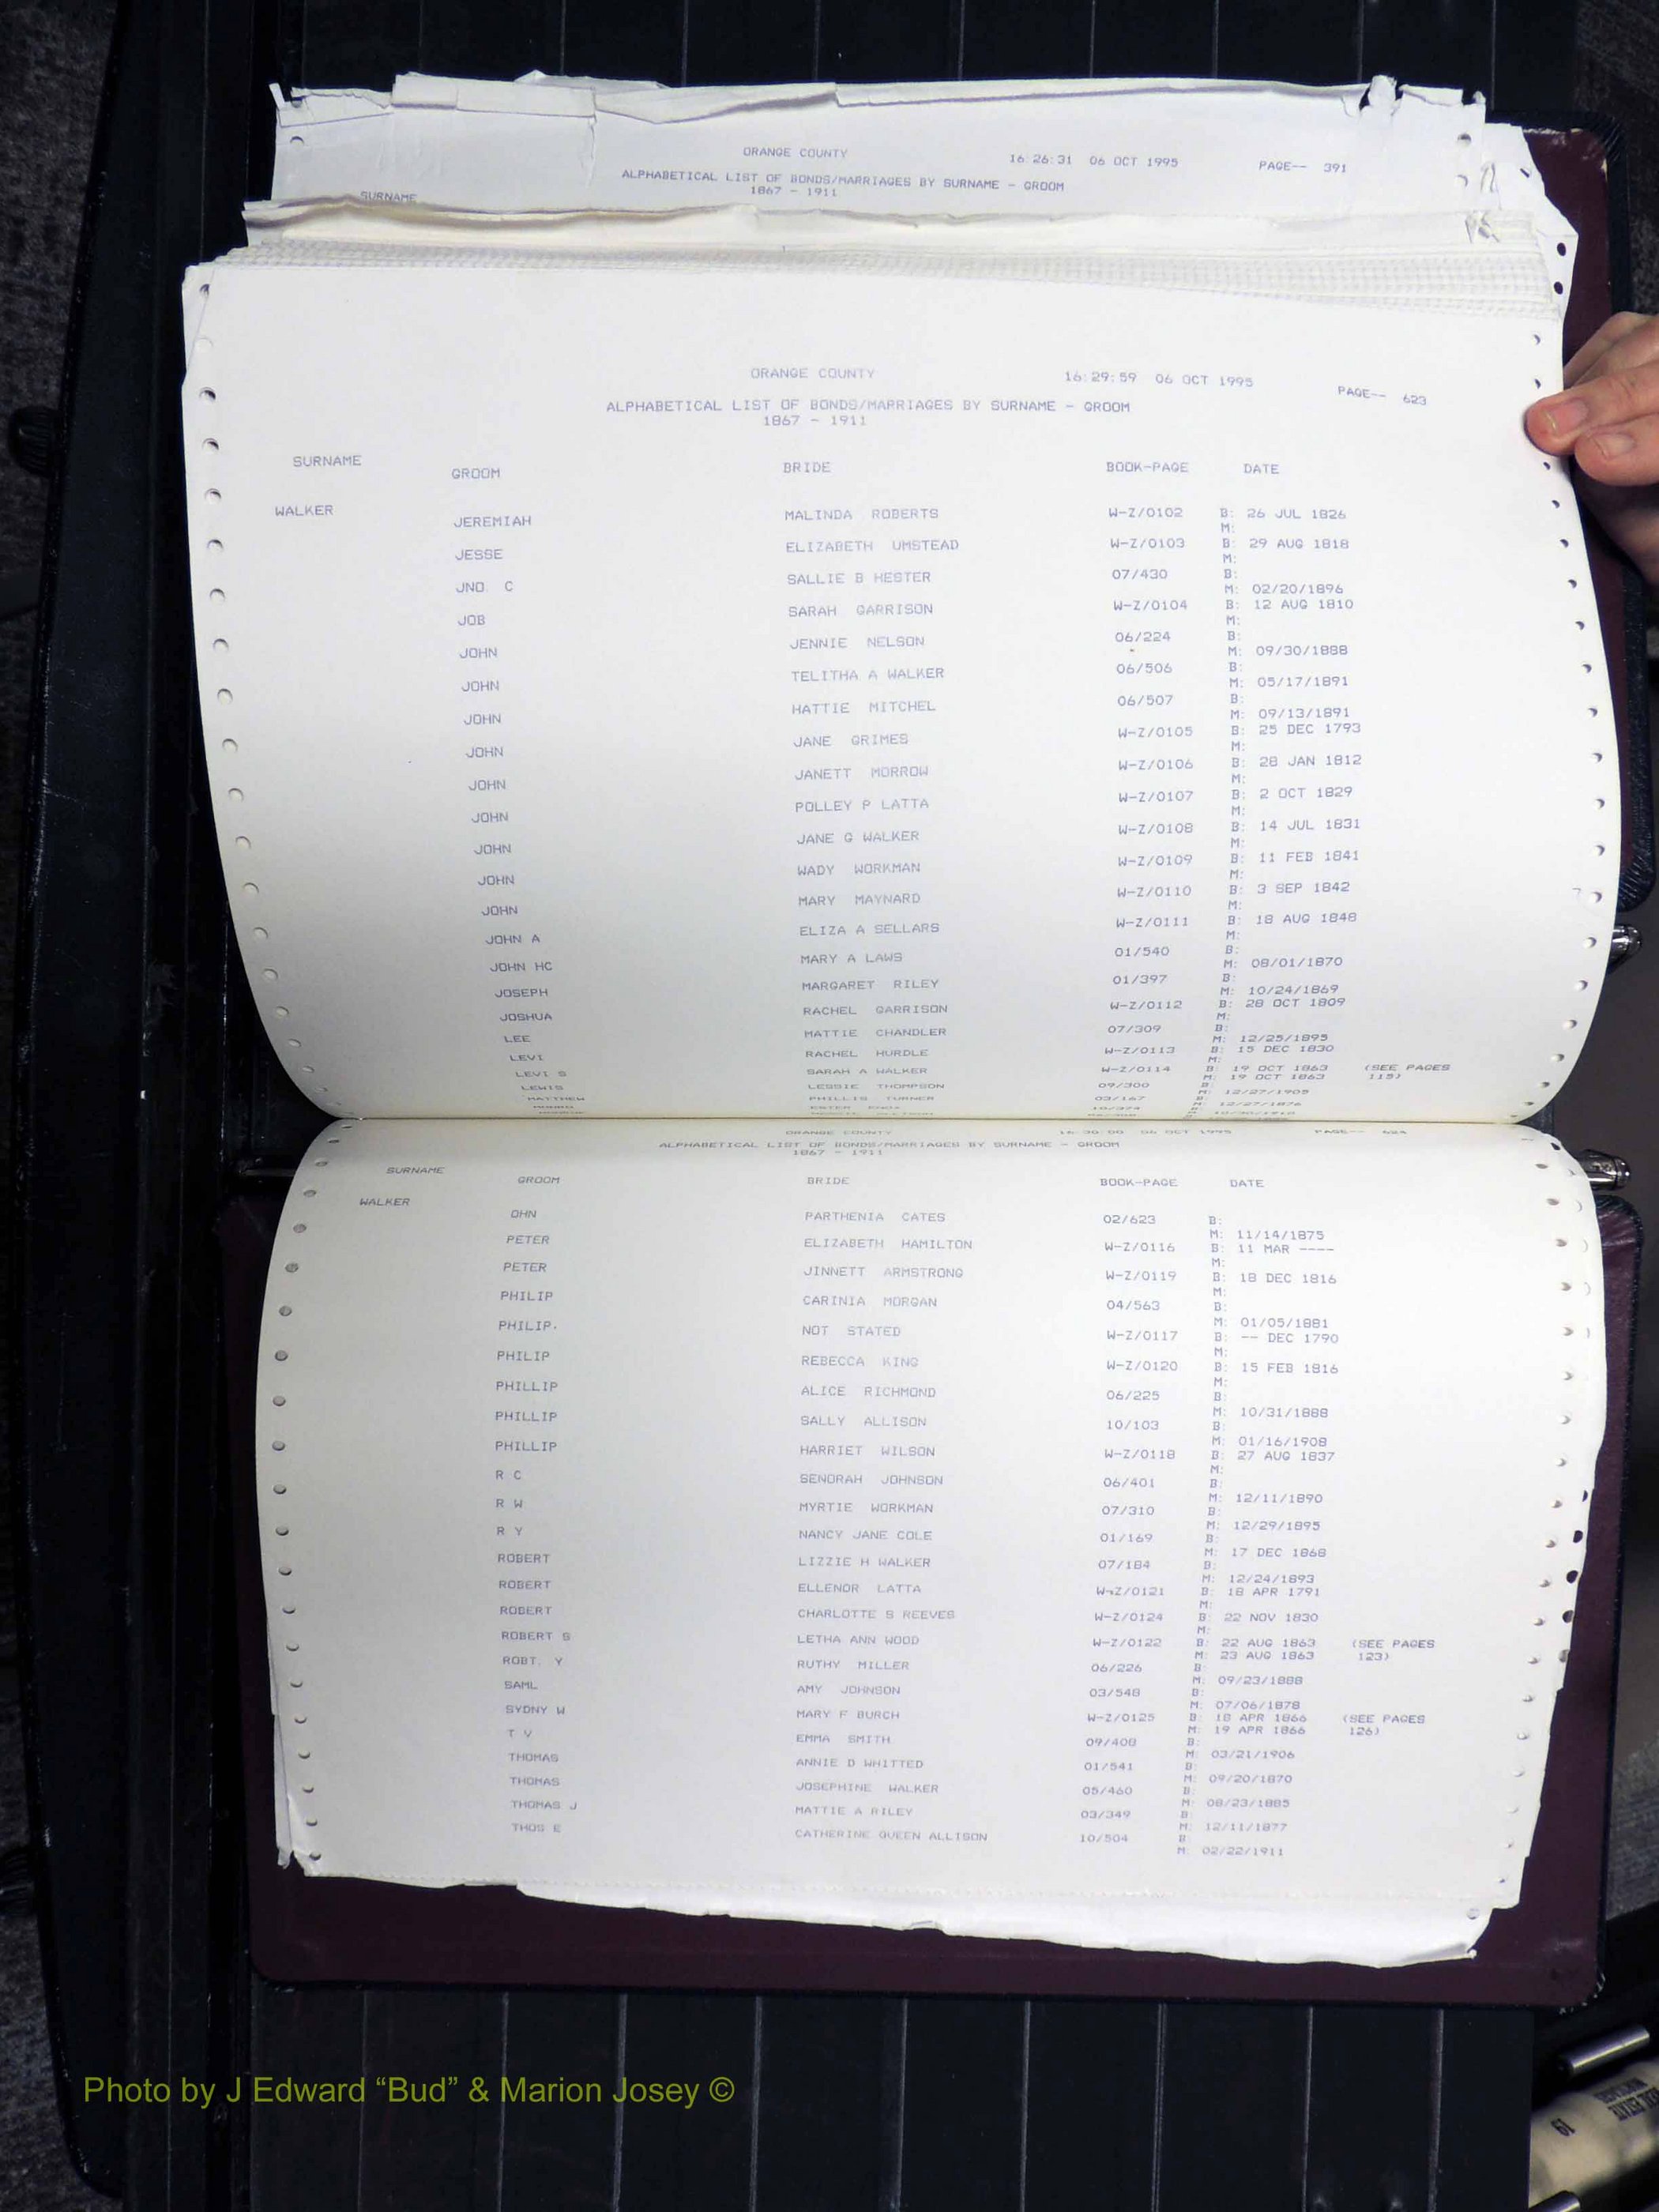 ORANGE COUNTY 16:26:31 06 OCT 1995 PAGE-- 391
ALPHABETICAL LIST OF BONDS/MARRIAGES BY SURNAME - GROOM
1867 - 1911
SURNAME
ORANGE COUNTY 16:29:59 06 OCT 1995 PAGE-- 623
ALPHABETICAL LIST OF BONDS/MARRIAGES BY SURNAME - GROOM
1867 - 1911
SURNAME GROOM BRIDE BOOK-PAGE DATE
WALKER JEREMIAH MALINDA ROBERTS W-Z/0102 B: 26 JUL 1826
M:
JESSE ELIZABETH UMSTEAD W-Z/0103 B: 29 AUG 1818
M:
JNO. C SALLIE B HESTER 07/430 B:
M: 02/20/1896
JOB SARAH GARRISON W-Z/0104 B: 12 AUG 1810
M:
JOHN JENNIE NELSON 06/224 B:
M: 09/30/1888
JOHN TELITHA A WALKER 06/506 B:
M: 05/17/1891
JOHN HATTIE MITCHEL 06/507 B:
M: 09/13/1891
JOHN JANE GRIMES W-Z/0105 B: 25 DEC 1793
M:
JOHN JANETT MORROW W-Z/0106 B: 28 JAN 1812
M:
JOHN POLLEY P LATTA W-Z/0107 B: 2 OCT 1829
M:
JOHN JANE G WALKER W-Z/0108 B: 14 JUL 1831
M:
JOHN WADY WORKMAN W-Z/0109 B: 11 FEB 1841
M:
JOHN MARY MAYNARD W-Z/0110 B: 3 SEP 1842
M:
JOHN A ELIZA A SELLARS W-Z/0111 B: 18 AUG 1848
M:
JOHN HC MARY A LAWS 01/540 B:
M: 08/01/1870
JOSEPH MARGARET RILEY 01/397 B:
M: 10/24/1869
JOSHUA RACHEL GARRISON W-Z/0112 B: 28 OCT 1809
M:
LEE MATTIE CHANDLER 07/309 B:
M: 12/25/1895
LEVI RACHEL HURDLE W-Z/0113 B: 15 DEC 1830
M:
LEVI S SARAH A WALKER W-Z/0114 B: 19 OCT 1863 (SEE PAGES
M: 19 OCT 1863 115)
LEWIS LESSIE THOMPSON 09/300 B:
M: 12/27/1905
MATTHEW PHILLIS TURNER 03/167 B:
M: 12/27/1876
ORANGE COUNTY 16:30:00 06 OCT 1995 PAGE-- 624
ALPHABETICAL LIST OF BONDS/MARRIAGES BY SURNAME - GROOM
1867 - 1911
SURNAME GROOM BRIDE BOOK-PAGE DATE
WALKER OHN PARTHENIA CATES 02/623 B:
M: 11/14/1875
PETER ELIZABETH HAMILTON W-Z/0116 B: 11 MAR ----
M:
PETER JINNETT ARMSTRONG W-Z/0119 B: 18 DEC 1816
M:
PHILIP CARINIA MORGAN 04/563 B:
M: 01/05/1881
PHILIP. NOT STATED W-Z/0117 B: -- DEC 1790
M:
PHILIP REBECCA KING W-Z/0120 B: 15 FEB 1816
M:
PHILLIP ALICE RICHMOND 06/225 B:
M: 10/31/1888
PHILLIP SALLY ALLISON 10/103 B:
M: 01/16/1908
PHILLIP HARRIET WILSON W-Z/0118 B: 27 AUG 1837
M:
R C SENORAH JOHNSON 06/401 B:
M: 12/11/1890
R W MYRTIE WORKMAN 07/310 B:
M: 12/29/1895
R Y NANCY JANE COLE 01/169 B:
M: 17 DEC 1868
ROBERT LIZZIE H WALKER 07/184 B:
M: 12/24/1893
ROBERT ELLENOR LATTA W-Z/0121 B: 18 APR 1791
M:
ROBERT CHARLOTTE S REEVES W-Z/0124 B: 22 NOV 1830
M:
ROBERT S LETHA ANN WOOD W-Z/0122 B: 22 AUG 1863 (SEE PAGES
M: 23 AUG 1863 123)
ROBT. Y RUTHY MILLER 06/226 B:
M: 09/23/1888
SAML AMY JOHNSON 03/548 B:
M: 07/06/1878
SYDNY W MARY F BURCH W-Z/0125 B: 18 APR 1866 (SEE PAGES
M: 19 APR 1866 126)
T V EMMA SMITH 09/408 B:
M: 03/21/1906
THOMAS ANNIE D WHITTED 01/541 B:
M: 09/20/1870
THOMAS JOSEPHINE WALKER 05/460 B:
M: 08/23/1885
THOMAS J MATTIE A RILEY 03/349 B:
M: 12/11/1877
THOS E CATHERINE QUEEN ALLISON 10/504 B
M: 02/22/1911
Photo by J Edward “Bud” & Marion Josey ©